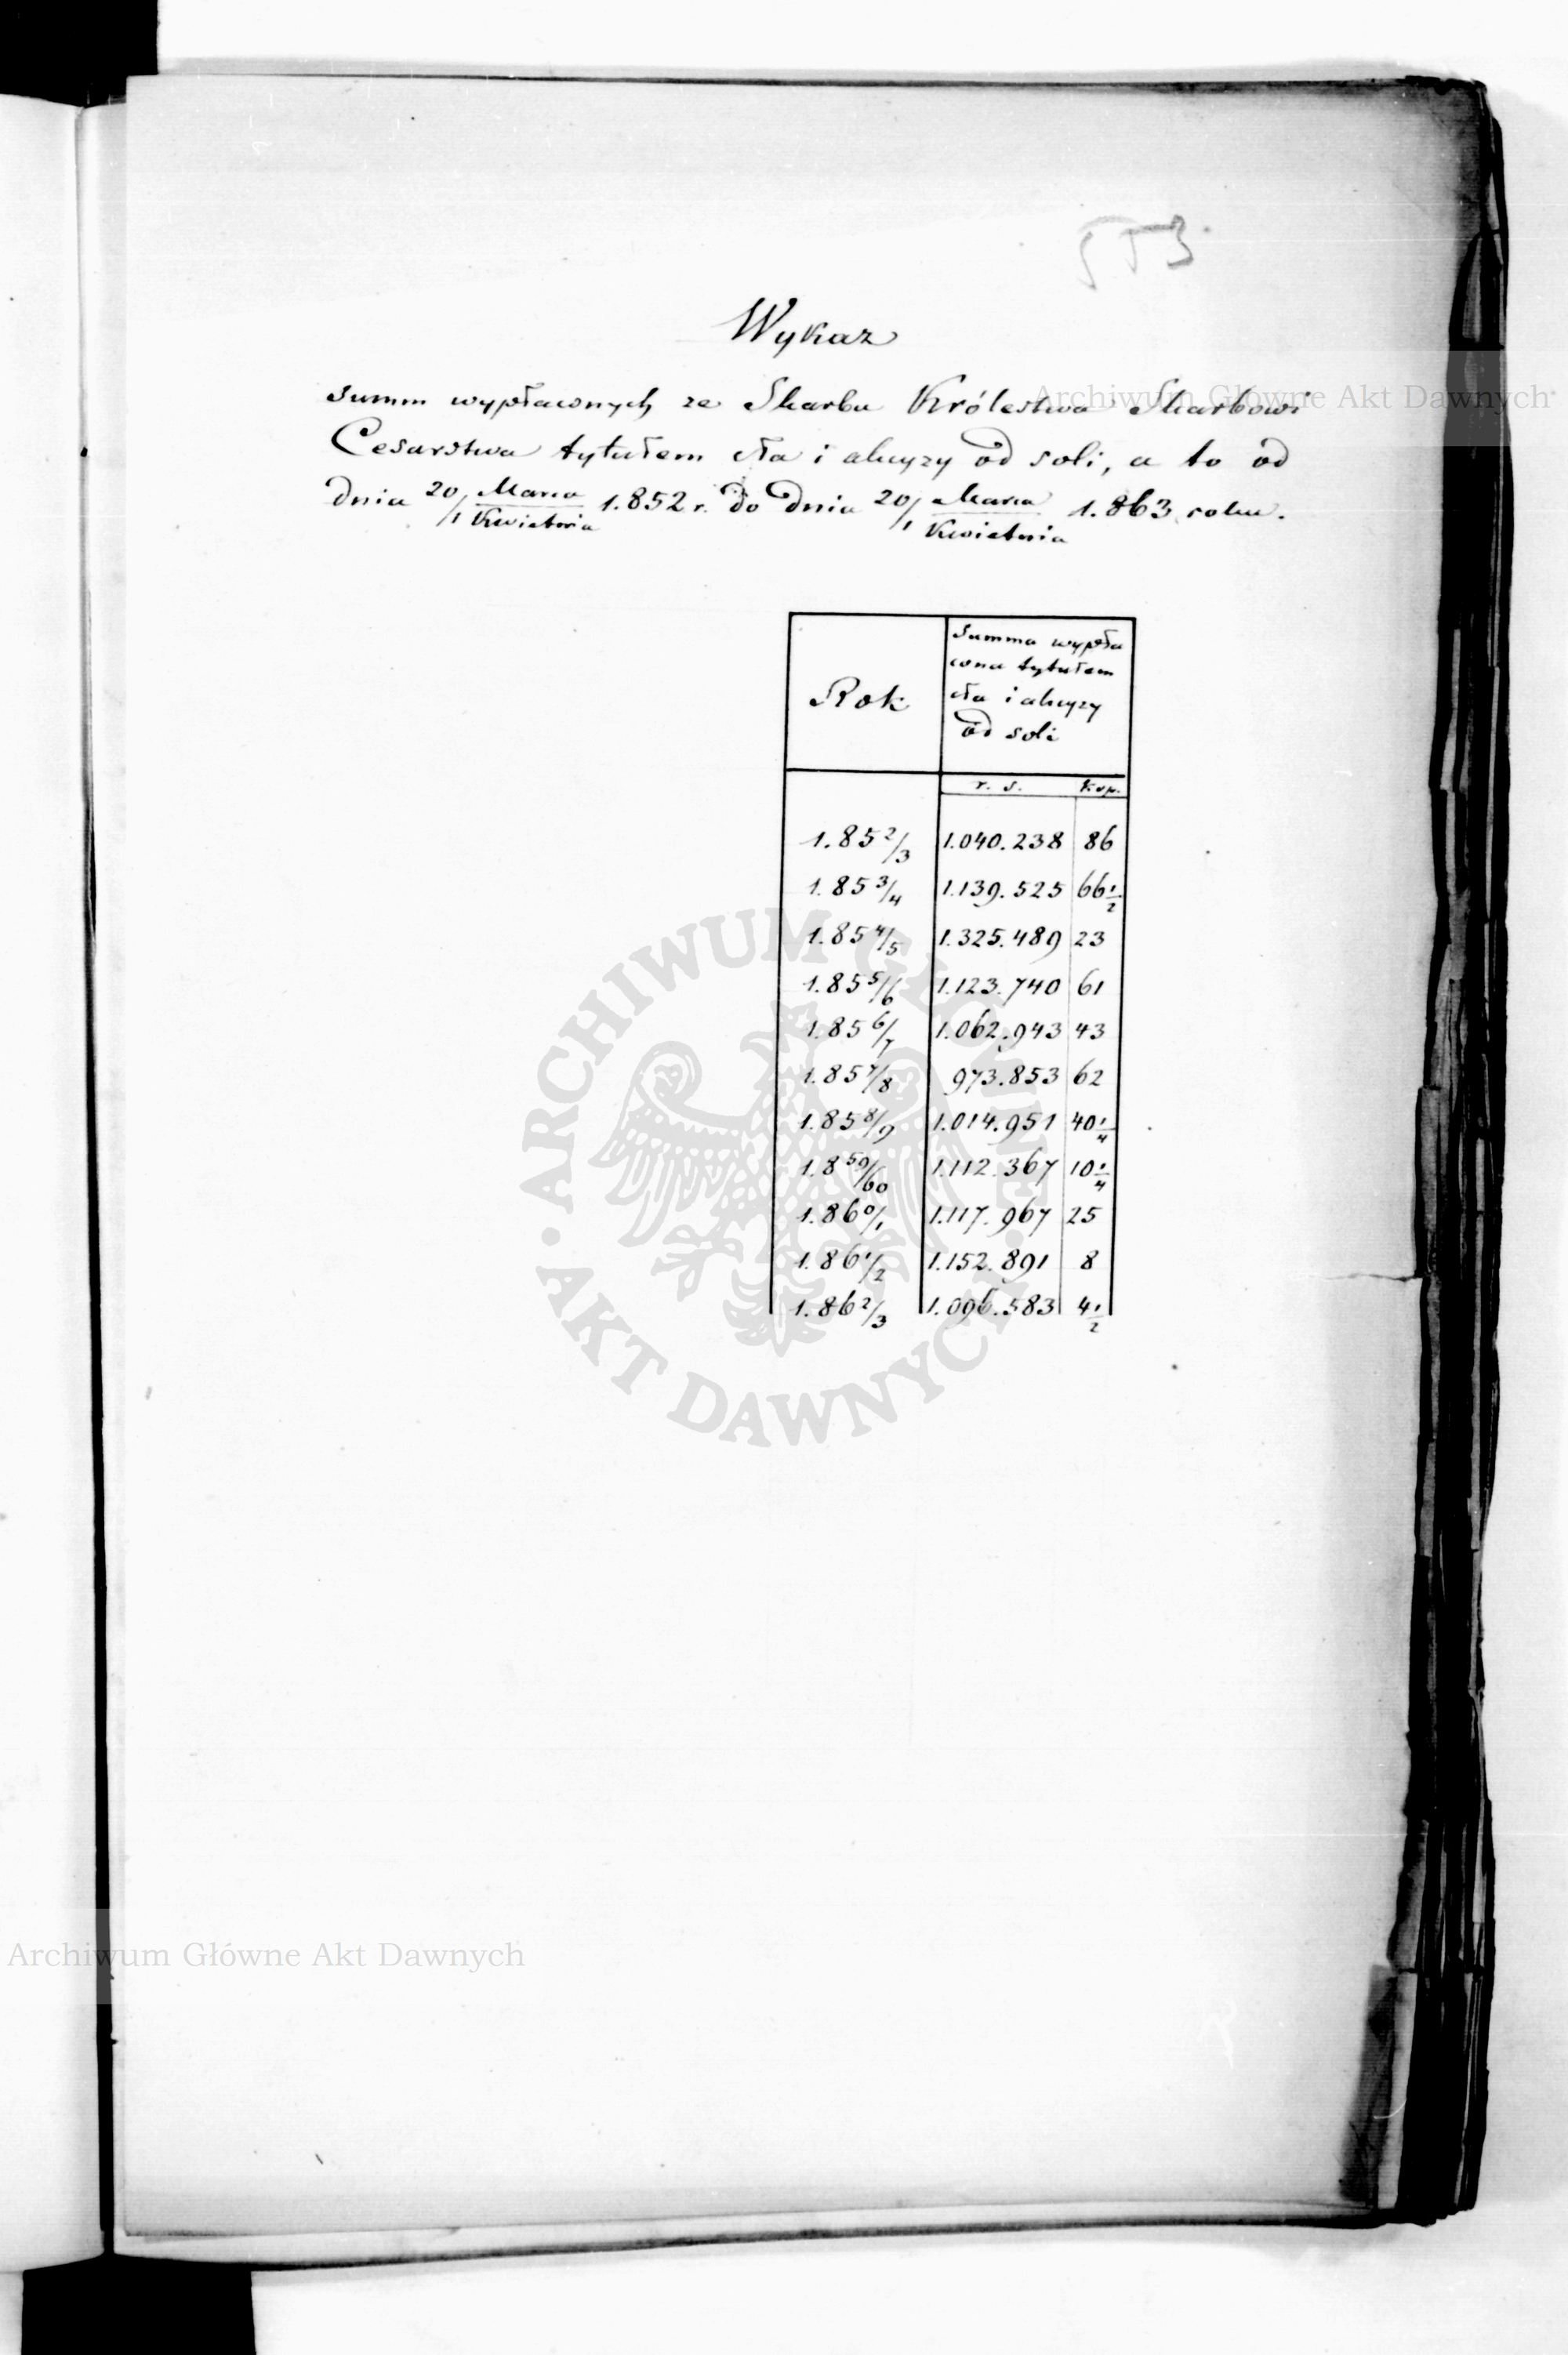 553.
Wykaz
summ wypłaconych ze Skarbu Królestwa Skarbowi
Cesarstwa tytułem cła i akcyzy od soli, a to od
dnia 20/1 Marca/Kwietnia 1.852 r. do dnia 20/1 Marca/Kwietnia 1.863 roku.
Rok
Summa wypła
cona tytułem
cła i akcyzy
od soli
r. s. Kop.
1.85 2/3 1.040.238 86
1.85 3/4 1.139.525 66 1/2
1.85 4/5 1.325.489 23
1.85 5/6 1.123.740 61
1.85 6/7 1.062.943 43
1.85 7/8 973.853 62
1.85 8/9 1.014.951 40 1/4
1.8 59/60 1.112.367 10 1/4
1.86 0/1 1.117.967 25
1.86 1/2 1.152.891 8
1.86 2/3 1.096.583 4 1/2
Archiwum Główne Akt Dawnych
ARCHIWUM GŁÓWNE
· AKT DAWNYCH ·
Archiwum Główne Akt Dawnych